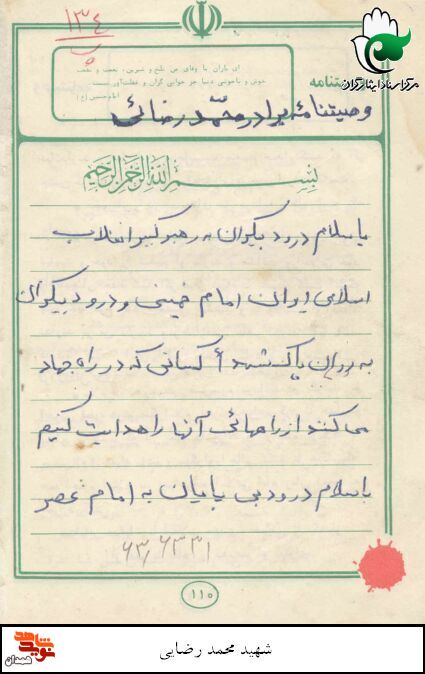 ۱۳۴
ب
مرکز اسناد ایثارگران
وصیتنامه
ای یاران با وفای من تلخ و شیرین،
خوش و ناخوشی دنیا جز خوابی گران و
امام حسین (ع)
وصیتنامه برادر محمد رضائی
بسم الله الرحمن الرحیم
باسلام درود بیکران به رهبر کبیر انقلاب
اسلامی ایران امام خمینی و درود بیکران
به روان پاک شهدا کسانی که در راه جهاد
می کنند از راههائی آنها را هدایت کنیم
باسلام درود بی پایان به امام عصر
۶۳٫۶۳۳۱
۱۱۰
نوید شاهد
همدان
شهید محمد رضایی